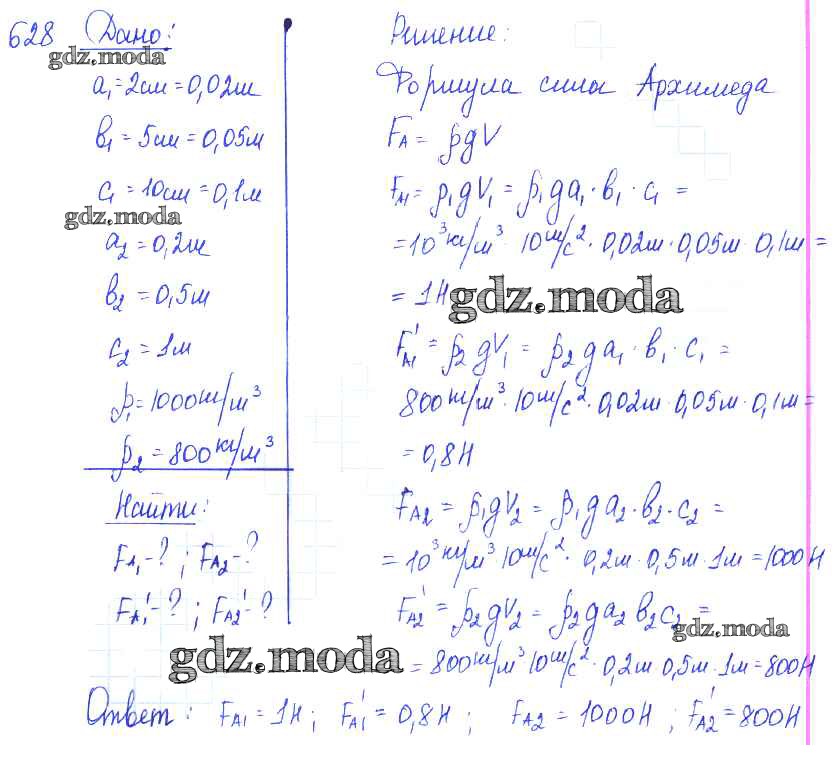 628 Дано:
gdz.moda
a₁ = 2см = 0,02м
b₁ = 5см = 0,05м
c₁ = 10см = 0,1м
gdz.moda
a₂ = 0,2м
b₂ = 0,5м
c₂ = 1м
ρ₁ = 1000кг/м³
ρ₂ = 800кг/м³
Найти:
F_A₁ - ? ; F_A₂ - ?
F_A₁' - ? ; F_A₂' - ?
Решение:
Формула силы Архимеда
F_A = ρgV
F_A₁ = ρ₁gV₁ = ρ₁ga₁·b₁·c₁ =
= 10³кг/м³·10м/с²·0,02м·0,05м·0,1м =
= 1Н
gdz.moda
F_A₁' = ρ₂gV₁ = ρ₂ga₁·b₁·c₁ =
800кг/м³·10м/с²·0,02м·0,05м·0,1м =
= 0,8Н
F_A₂ = ρ₁gV₂ = ρ₁ga₂·b₂·c₂ =
= 10³кг/м³ 10м/с²·0,2м·0,5м·1м = 1000Н
F_A₂' = ρ₂gV₂ = ρ₂ga₂b₂c₂ =
gdz.moda
= 800кг/м³ 10м/с²·0,2м 0,5м·1м = 800Н
gdz.moda
Ответ: F_A₁ = 1Н; F_A₁' = 0,8Н; F_A₂ = 1000Н; F_A₂' = 800Н